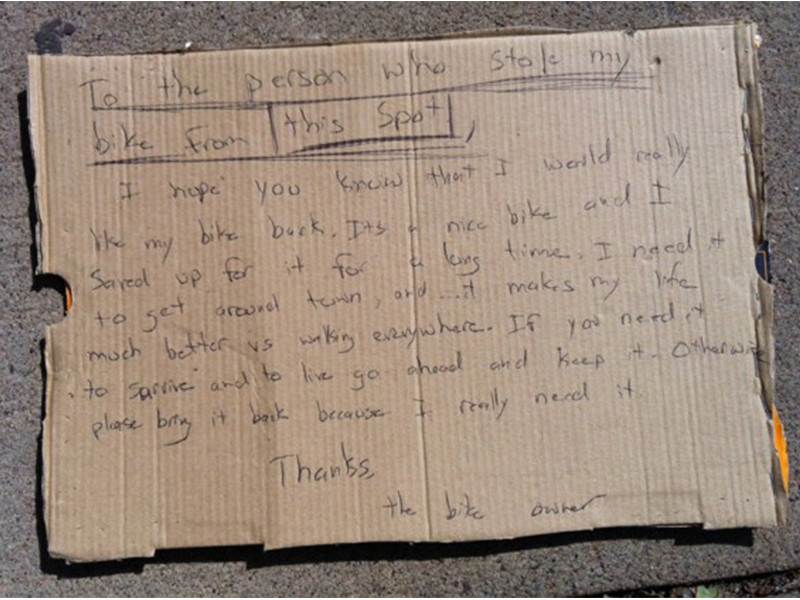 To the person who stole my
bike from this spot,
I hope you know that I would really
like my bike back. Its a nice bike and I
Saved up for it for a long time. I need it
to get around town, and...it makes my life
much better vs walking everywhere. If you need it
to survive and to live go ahead and keep it. Otherwise
please bring it back because I really need it.
Thanks,
the bike owner